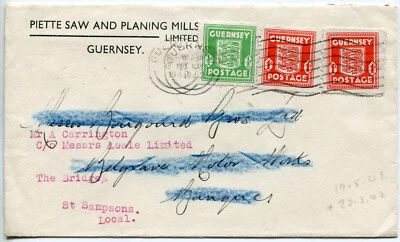 PIETTE SAW AND PLANING MILLS
LIMITED
GUERNSEY.
GUERNSEY
POSTAGE
GUERNSEY
POSTAGE
GUERNSEY
POSTAGE
Bros Ltd
Mr A Carrington
C/o Messrs Leale Limited
Belgrave Motor Works
The Bridge,
Banques
St Sampsons.
Local.